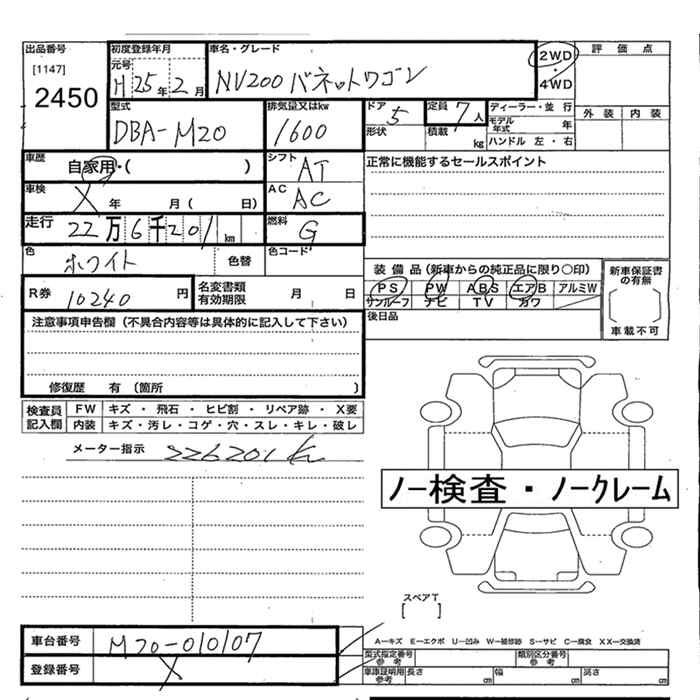 出品番号
[1147]
2450
初度登録年月
元号
H 25年 2月
車名・グレード
NV200 バネットワゴン
2WD
・
4WD
評 価 点
外 装 内 装
型式
DBA-M20
排気量又はkw
1600
ドア 5
形状
定員 7人
積載 kg
ディーラー・並 行
モデル年式 年
ハンドル 左・右
車歴
自家用・( )
シフト AT
正常に機能するセールスポイント
車検 X 年 月 ( 日)
AC AC
走行 22万6千201km
燃料 G
色 ホワイト 色替
色コード
装 備 品 (新車からの純正品に限り○印)
PS PW ABS エアB アルミW
サンルーフ ナビ TV カワ
新車保証書の有無
車載不可
R券 10240 円
名変書類有効期限 月 日
後日品
注意事項申告欄(不具合内容等は具体的に記入して下さい)
修復歴 有 (箇所 )
検査員記入欄
FW キズ ・ 飛石 ・ ヒビ割 ・ リペア跡 ・ X要
内装 キズ・汚レ・コゲ・穴・スレ・キレ・破レ
メーター指示 226201 km
ノー検査・ノークレーム
スペアT
[ ]
A―キズ E―エクボ U―凹み W―補修跡 S―サビ C―腐食 XX―交換済
車台番号 M20-010107
登録番号 X
型式指定番号 参考
類別区分番号 参考
車庫証明用 参考 長さ cm 幅 cm 高さ cm